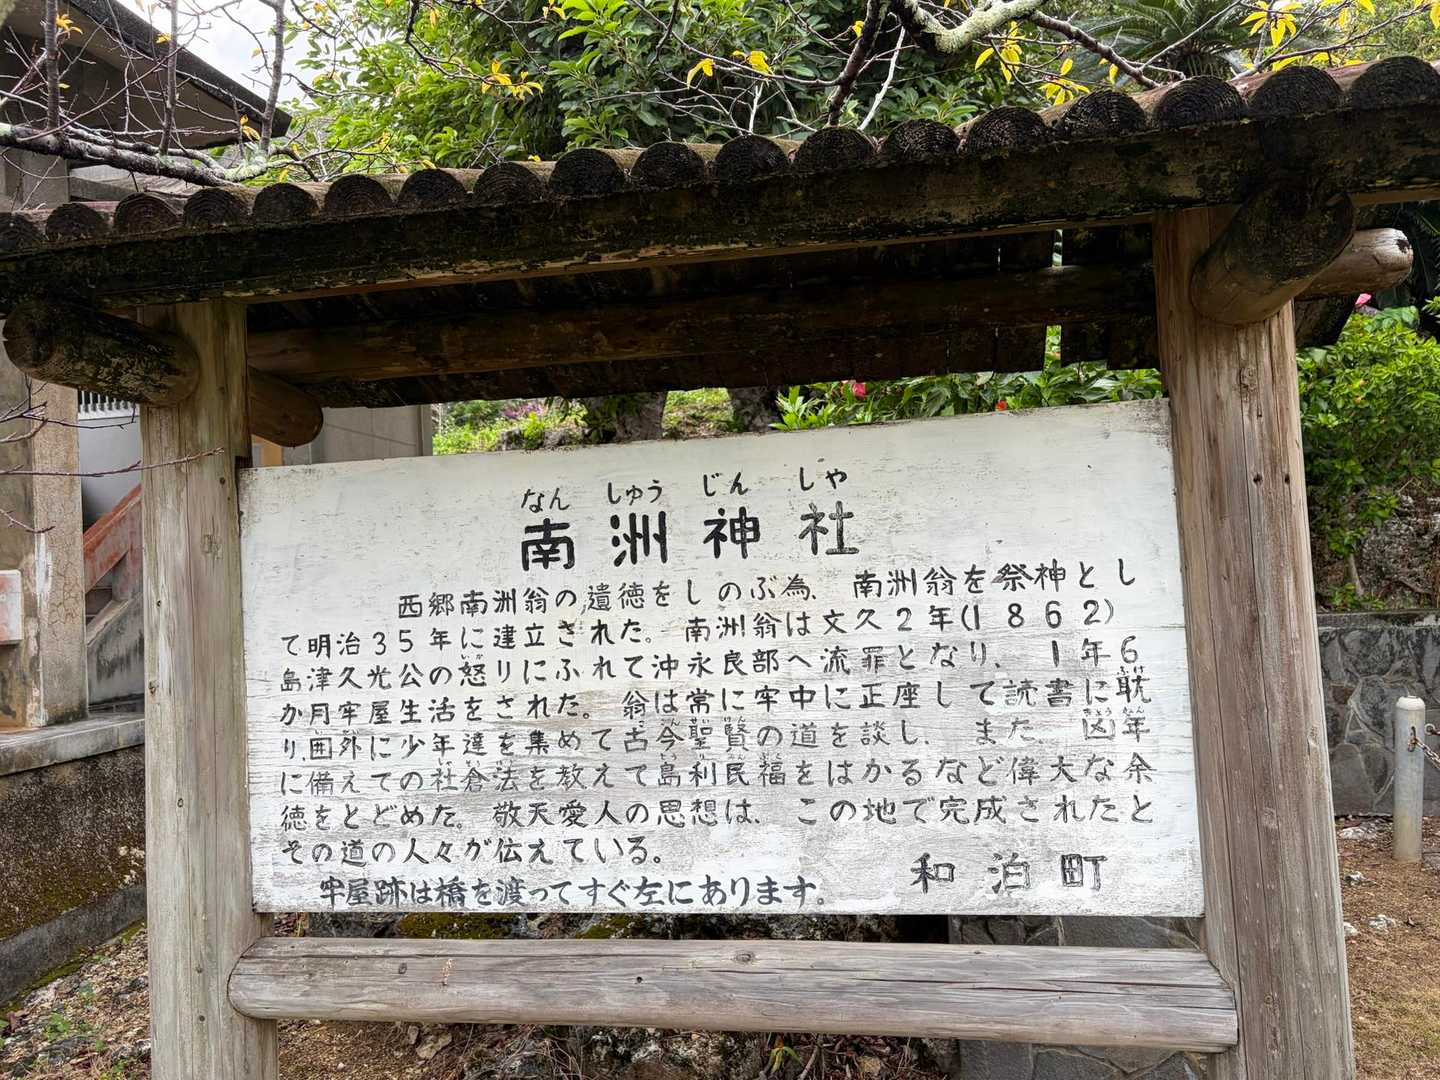 なんしゅうじんしゃ
南洲神社
西郷南洲翁の遺徳をしのぶ為、南洲翁を祭神とし
て明治35年に建立された。南洲翁は文久2年(1862)
島津久光公の怒りにふれて沖永良部へ流罪となり、1年6
か月牢屋生活をされた。翁は常に牢中に正座して読書に耽
り、囲外に少年達を集めて古今聖賢の道を談し、また、凶年
に備えての社倉法を教えて島利民福をはかるなど偉大な余
徳をとどめた。敬天愛人の思想は、この地で完成されたと
その道の人々が伝えている。
和泊町
牢屋跡は橋を渡ってすぐ左にあります。